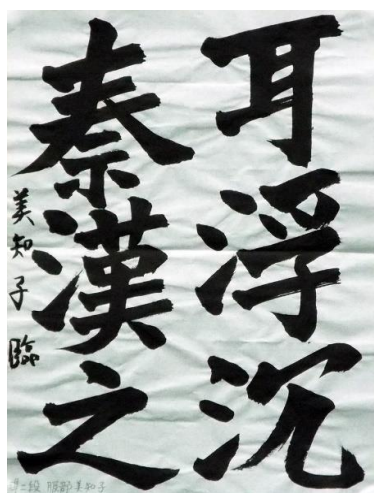 耳浮沉
秦漢之
美知子臨
二段 服部美知子